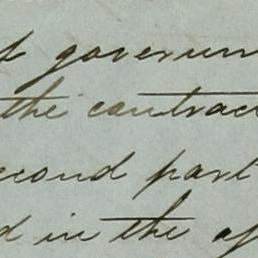 governm
the contrac
second part
d in the of